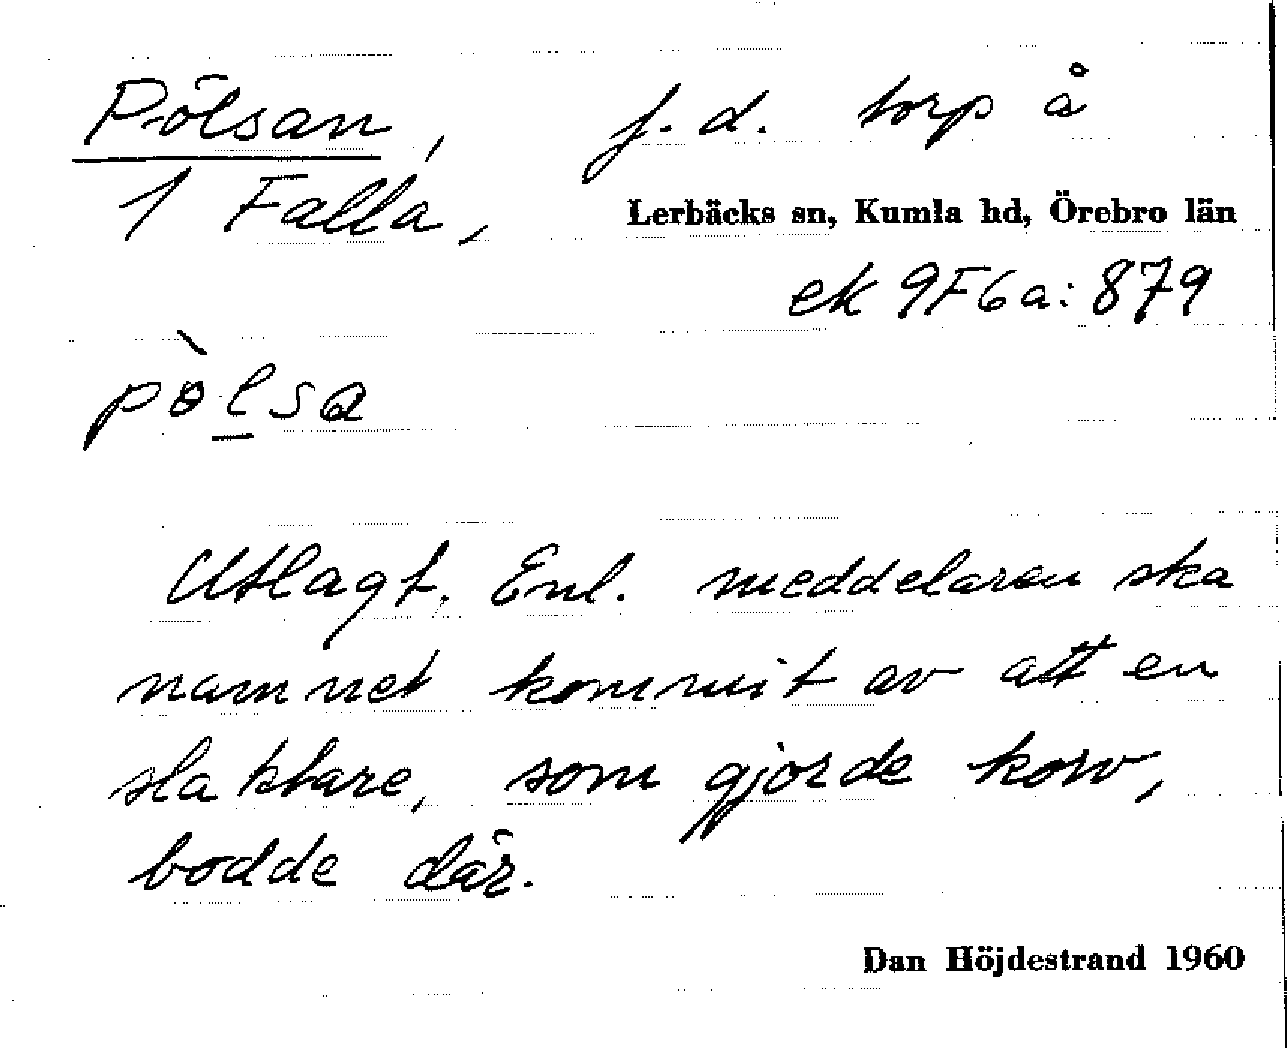 Pölsan, f.d. torp å
1 Falla, Lerbäcks sn, Kumla hd, Örebro län
ek 9F6a:879
pòlsa
Utlagt. Enl. meddelaren ska
namnet kommit av att en
slaktare, som gjorde korv,
bodde där.
Dan Höjdestrand 1960